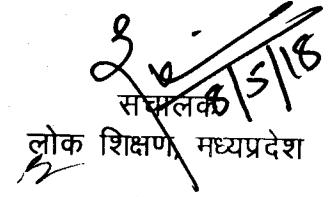 8/5/18
संचालक
लोक शिक्षण, मध्यप्रदेश